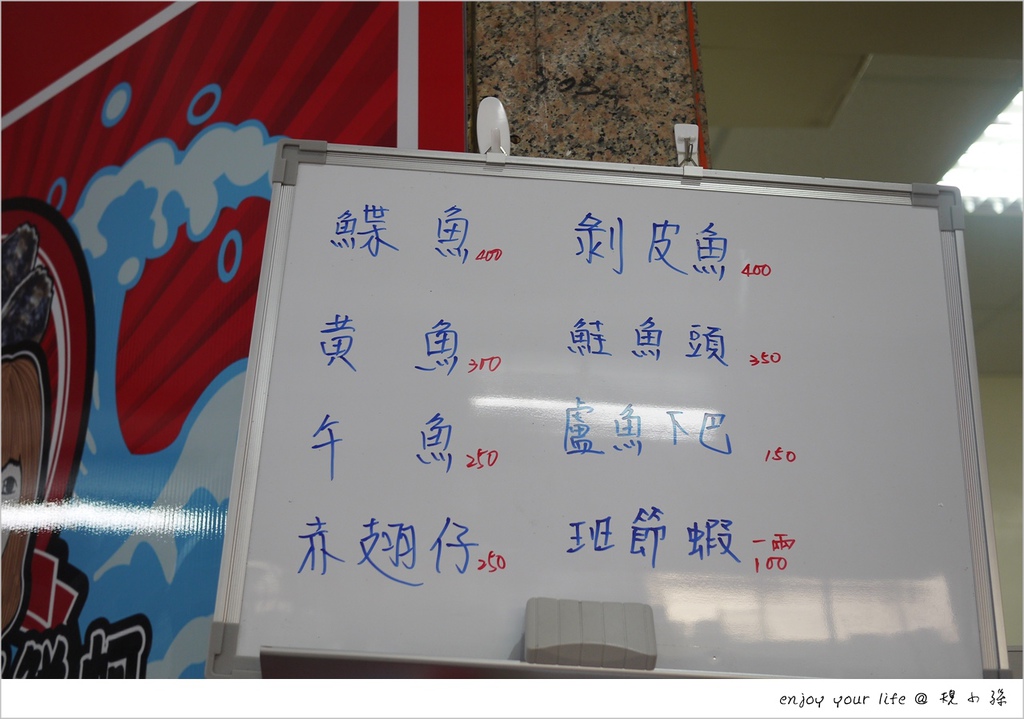 鰈魚 400
剥皮魚 400
黃魚 300
鮭魚頭 350
午魚 250
盧魚下巴 150
赤翅仔 250
班節蝦 一兩 100
enjoy your life @ 規小孫